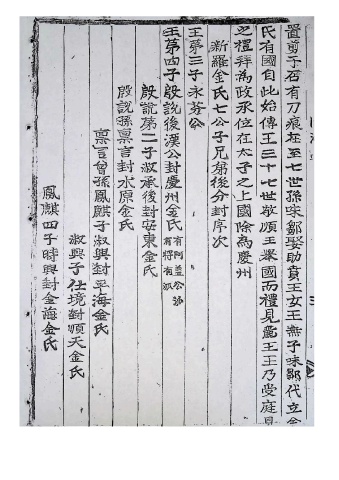 置剪子石有刀痕在至七世孫味鄒娶助賁王女王無子味鄒代立金
氏有國自此始傳王三十七世敬順王擧國而禮見麗王王乃受庭見
之禮拜為政丞位在太子之上國除為慶州
新羅金氏七公子兄弟後分封序次
王第三子永芬公
王第四子殷說後漢公封慶州金氏 有阿 公派 有將 派
殷說第二子叔承後封安東金氏
殷說孫稟言封水原金氏
稟言曾孫鳳麒子淑興封平海金氏
淑興子仕境封順天金氏
鳳麒四子時興封金海金氏